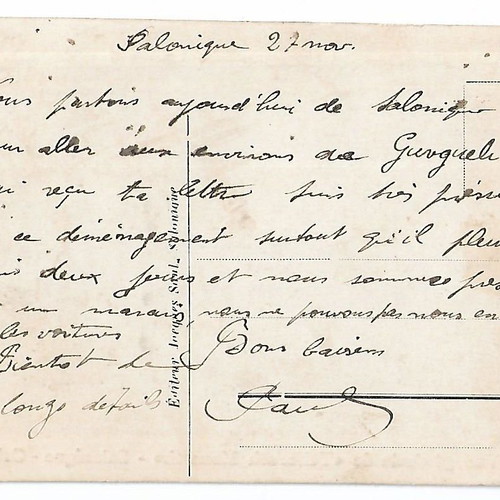 Salonique 27 nov.
ous partons aujourd'hui de Salonique
ur aller aux environs de Guvgueli
ai reçu ta lettre suis très pressé
ce déménagement surtout qu'il pleu
is deux jours et nous sommes
un marais, nous ne pouvons pas nous en
les voitures
Bientôt de
longs détails
Bons baisers
Paul
Editeur Hughes